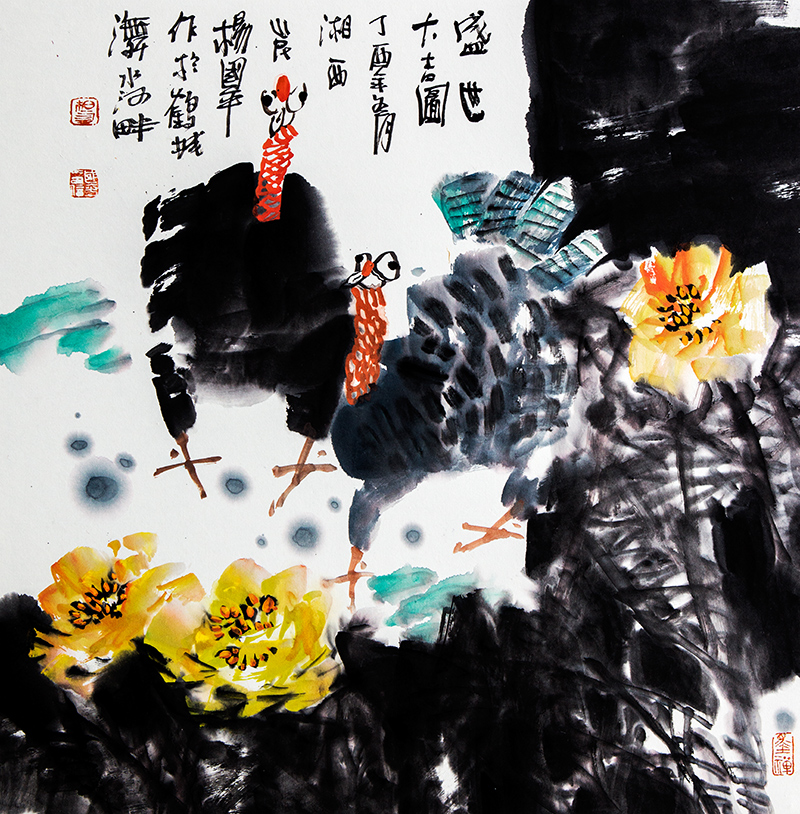 盛世
大吉圖
丁酉年五月
湘西
山民
楊國平
作於鶴城
㵲水河畔